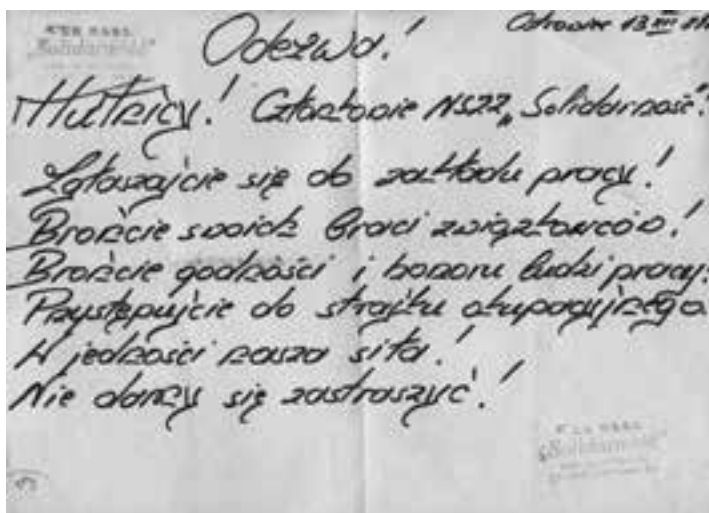 Odezwa!
13 XII
Hutnicy! Członkowie NSZZ „Solidarność”!
Zgłaszajcie się do zakładu pracy!
Brońcie swoich braci związkowców!
Brońcie godności i honoru ludzi pracy!
Przystępujcie do strajku okupacyjnego
W jedności nasza siła!
Nie damy się zastraszyć!
„Solidarność”
„Solidarność”